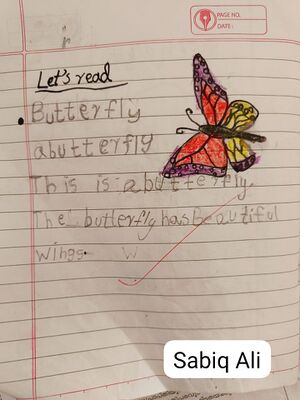 PAGE NO.
DATE:
Let's read
Butterfly
a butterfly
This is a butterfly.
The butterfly has beautiful
wings. W
Sabiq Ali